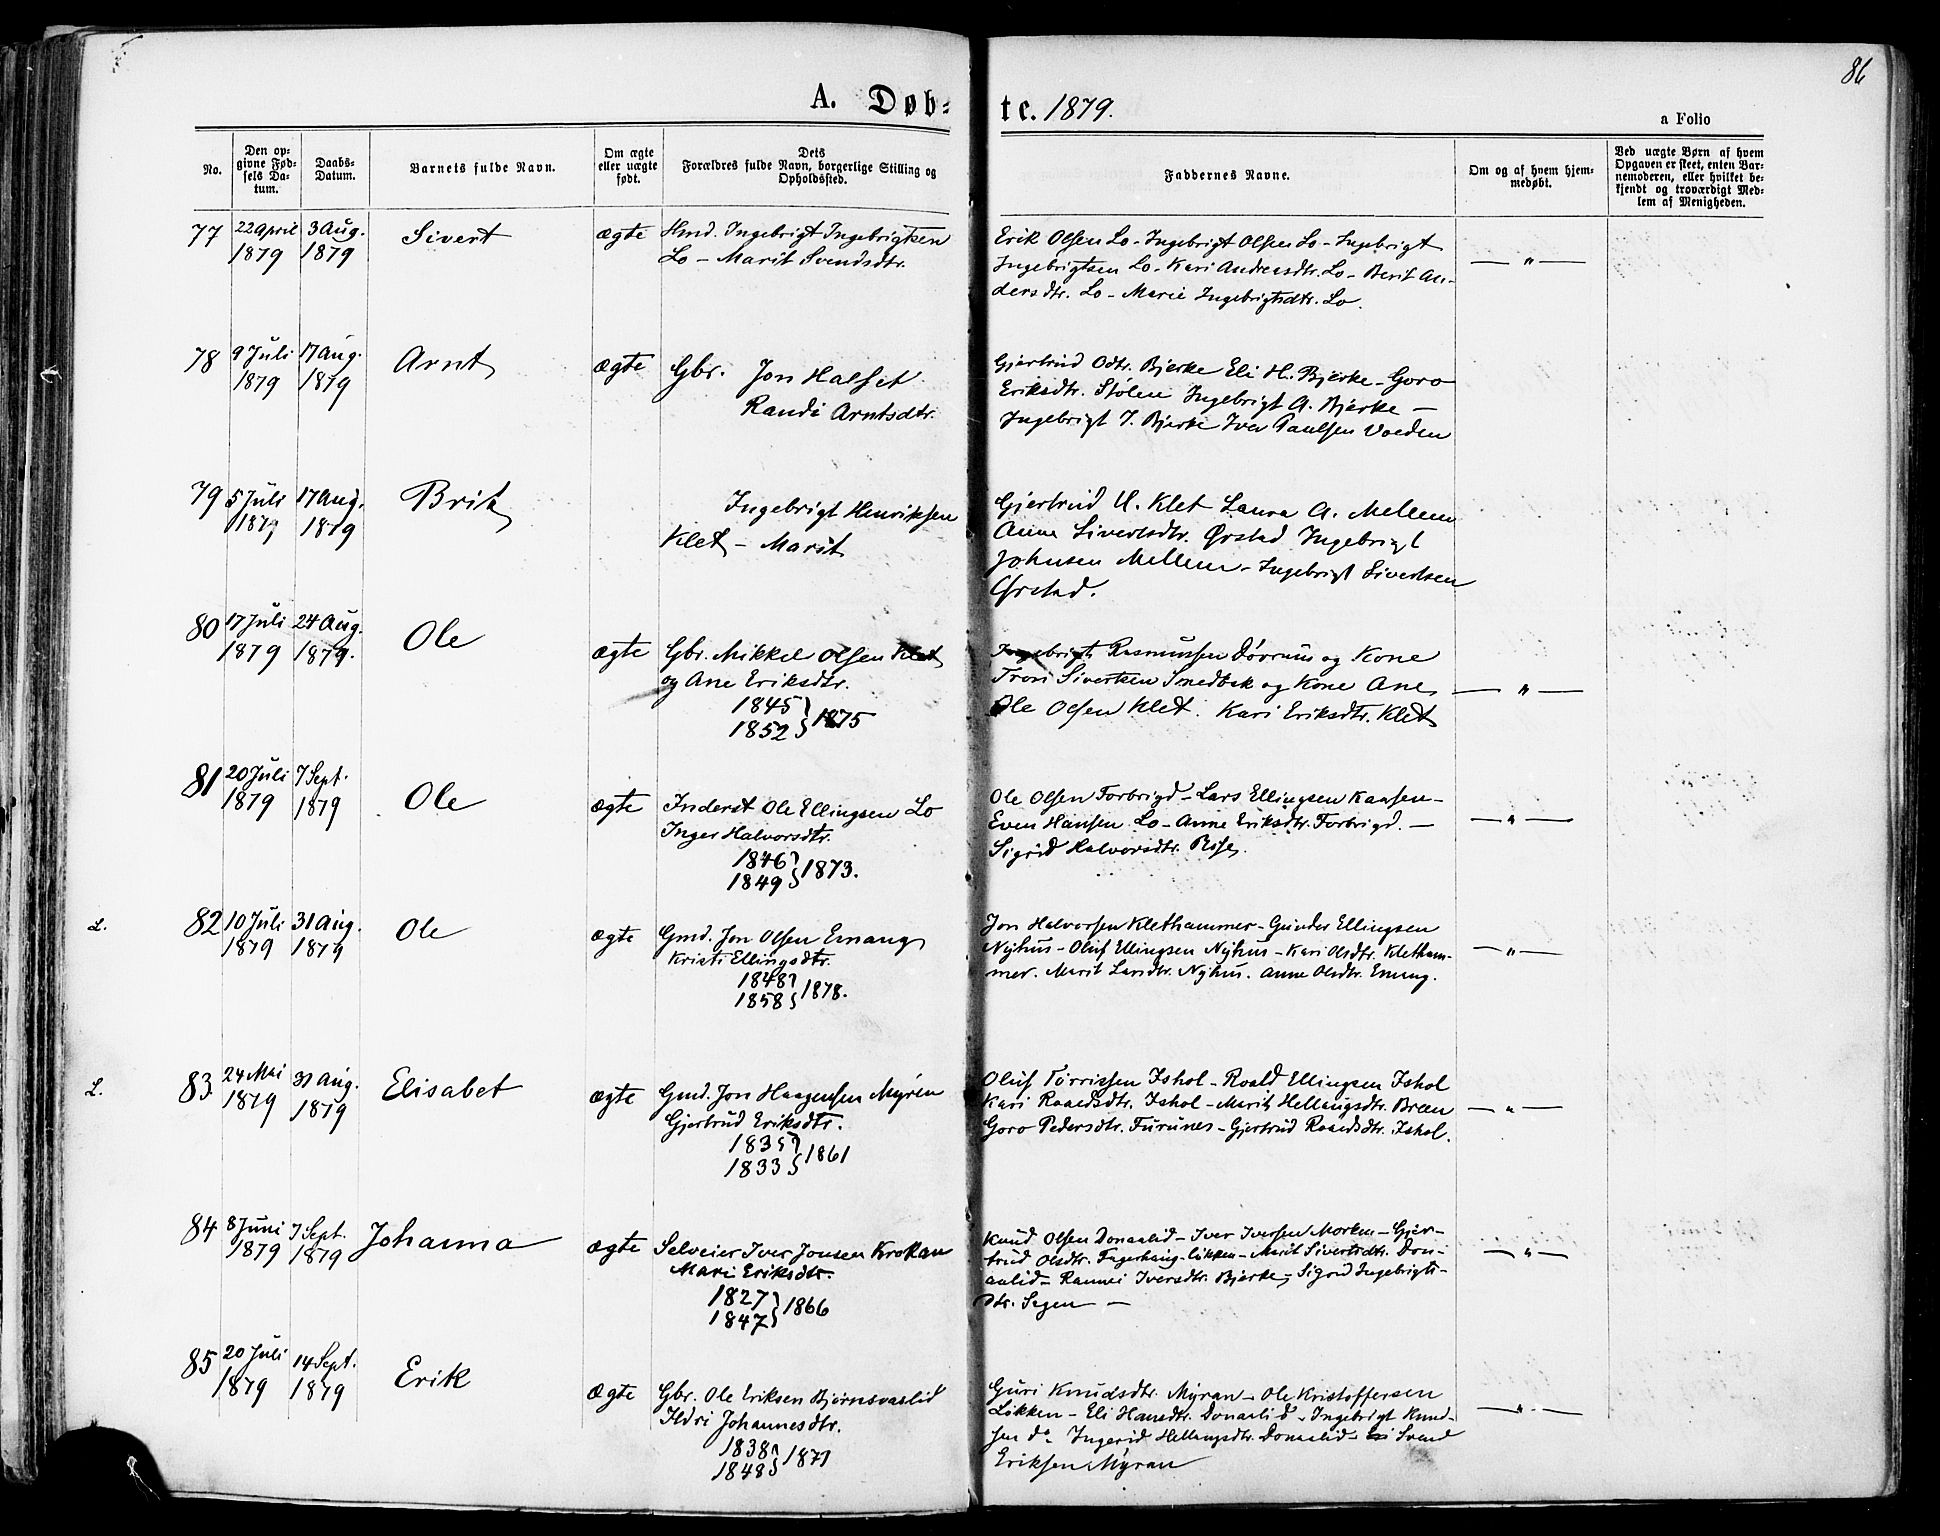 86
A. Døb=
te. 1879.
a Folio
No.
Den op-
givne Fød-
sels Da-
tum.
Daabs-
Datum.
Barnets fulde Navn.
Om ægte
eller uægte
født.
Dets
Forældres fulde Navn, borgerlige Stilling og
Opholdssted.
Faddernes Navne.
Om og af hvem hjem-
medøbt.
Ved uægte Børn af hvem
Opgaven er skeet, enten Bar-
nemoderen, eller hvilket be-
kjendt og troværdigt Med-
lem af Menigheden.
77
22 April
1879
3 Aug.
1879
Sivert
ægte
Hmd. Ingebrigt Ingebrigtsen
Lo - Marit Svendsdtr.
Erik Olsen Lo - Ingebrigt Olsen Lo - Ingebrigt
Ingebrigtsen Lo - Kari Andersdtr. Lo - Berit An-
dersdtr. Lo - Marie Ingebrigtsdtr. Lo.
— " —
78
9 Juli
1879
17 Aug.
1879
Arnt
ægte
Gbr. Jon Halset
Randi Arntsdtr.
Gjertrud Odtr. Bjerke Eli H. Bjerke - Goro
Eriksdtr. Stølen Ingebrigt A. Bjerke —
Ingebrigt J. Bjerke Iver Paulsen Voeden
79
5 Juli
1879
17 Aug.
1879
Brit
Ingebrigt Henriksen
Klet - Marit
Gjertrud U. Klet Laura A. Mellem
Anne Sivertsdtr. Ørstad Ingebrigt
Johnsen Mellem - Ingebrigt Sivertsen
Ørstad.
80
17 Juli
1879
24 Aug.
1879.
Ole
ægte
Gbr. Mikkel Olsen Klet
og Ane Eriksdtr.
1845
1852 } 1875
Ingebrigt Rasmussen Dørrum og Kone
Trori Sivertsen Smedbak og Kone Ane
Ole Olsen Klet. Kari Eriksdtr. Klet
— " —
81
20 Juli
1879
7 Sept.
1879
Ole
ægte
Inderst Ole Ellingsen Lo
Inger Halvorsdtr.
1846
1849 } 1873.
Ole Olsen Forbrigd - Lars Ellingsen Kaasen -
Even Hansen Lo - Anne Eriksdtr. Forbrigd. —
Sigrid Halvorsdtr. Rise
— " —
L.
82
10 Juli
1879
31 Aug.
1879
Ole
ægte
Gmd. Jon Olsen Emang
Kristi Ellingsdtr.
1848
1858 } 1878.
Jon Halvorsen Klethammer - Gunder Ellingsen
Nyhus - Oluf Ellingsen Nyhus - Kari Olsdtr. Kletham-
mer. Marit Larsdtr. Nyhus. Anne Olsdtr. Emang.
— " —
L.
83
24 Mai
1879
31 Aug.
1879
Elisabet
ægte
Gmd. Jon Haagensen Myren
Gjertrud Eriksdtr.
1835
1833 } 1861
Oluf Tørrissen Ishol - Roald Ellingsen Ishol
Kari Roaldsdtr. Ishol - Marit Hellaugsdtr. Bræn
Goro Pedersdtr. Furunes - Gjertrud Roaldsdtr. Ishol.
— " —
84
8 Juni
1879
7 Sept.
1879
Johanna
ægte
Selveier Iver Jonsen Krokan
Mari Eriksdtr.
1827
1847 } 1866
Knud Olsen Donaalid - Iver Iversen Morken - Gjer-
trud Olsdtr. Fagerhaug-løkken - Marit Sivertsdtr. Don-
aalid - Iversdtr. Bjerke - Sigrid Ingebrigts-
dtr. Segen —
— " —
85
20 Juli
1879
14 Sept.
1879
Erik
Ægte
Gbr. Ole Eriksen Bjørnsvaslid
Ildri Johannesdtr.
1838
1848 } 1871
Guri Knudsdtr. Myran - Ole Kristoffersen
Løkken - Eli Hansdtr. Donaalid - Ingebrigt Knud-
sen do Ingerid Hellaugsdtr. Donaalid - Svend
Eriksen Myran
— " —